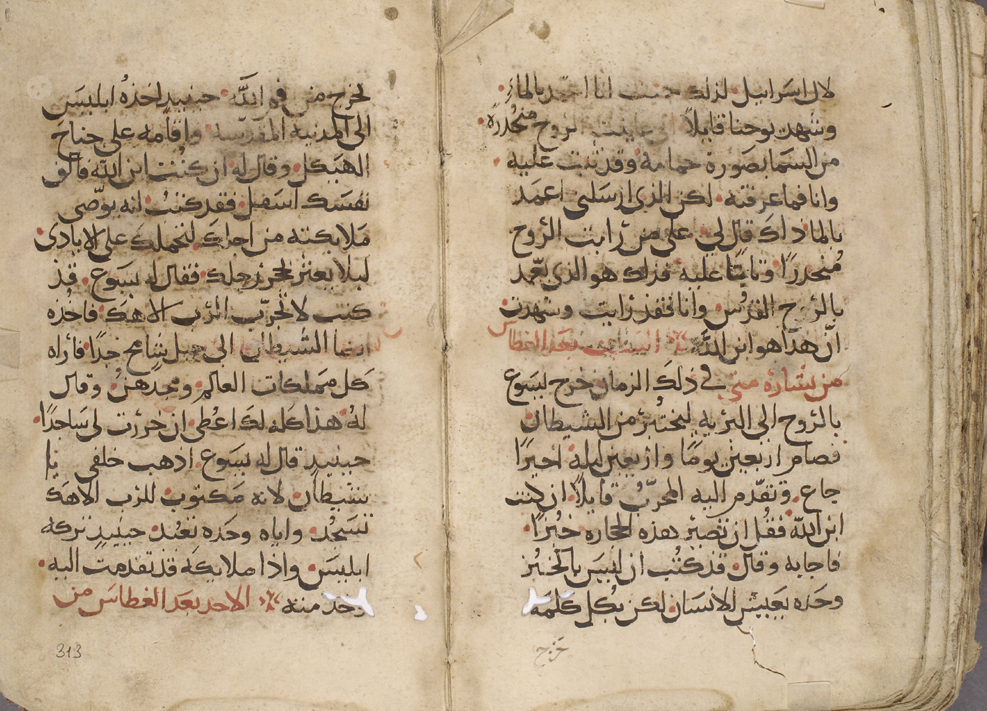 لال اسراييل لذلك جيت انا اعمد بالماء
وشهد يوحنا قايلا اني عاينت الروح منحدره
من السما بصوره حمامة وقد ثبت عليه
وانا فما عرفته لكن الذي ارسلني اعمد
بالما ذاك قال لي على من رايت الروح
منحدرًا وثابتًا عليه فذلك هو الذي يعمد
بالروح القدس وانا فقد رايت وشهدت
ان هذا هو ابن الله بعد الغطاس
من بشارة متى في ذلك الزمان خرج يسوع
بالروح الى البريه ليختبر من الشيطان
فصام اربعين يومًا واربعين ليلة اخيرًا
جاع وتقدم اليه المجرب قايلاً ان كنت
ابن الله فقل ان تصير هذه الحجاره خبزًا
فاجابه وقال قد كتب ان ليس بالخبز
وحده يعيش الانسان لكن بكل كلمه
تخرج
تخرج من فم الله حينيد اخذه ابليس
الى المدنية المقدسة واقامه على جناح
الهيكل وقال له ان كنت ابن الله فالق
نفسك اسفل فقد كتب انه يوصى
ملايكته من اجلك لتحملك على الايادى
ليلا يعثر بحجر رجلك فقال له يسوع قد
كتب لا تجرب الرب الاهك فاخذه
ايضا الشيطان الى جبل شامخ جدًا فاراه
كل مملكات العالم ومجدهن وقال
له هذا كله لك اعطي ان خررت لي ساجدًا
حينيد قال له يسوع اذهب خلفي يا
شيطان لانه مكتوب للرب الاهك
تسجد واياه وحده تعبد حينيد تركه
ابليس واذا ملايكة قد تقدمت اليه
منه الاحد بعد الغطاس من
313